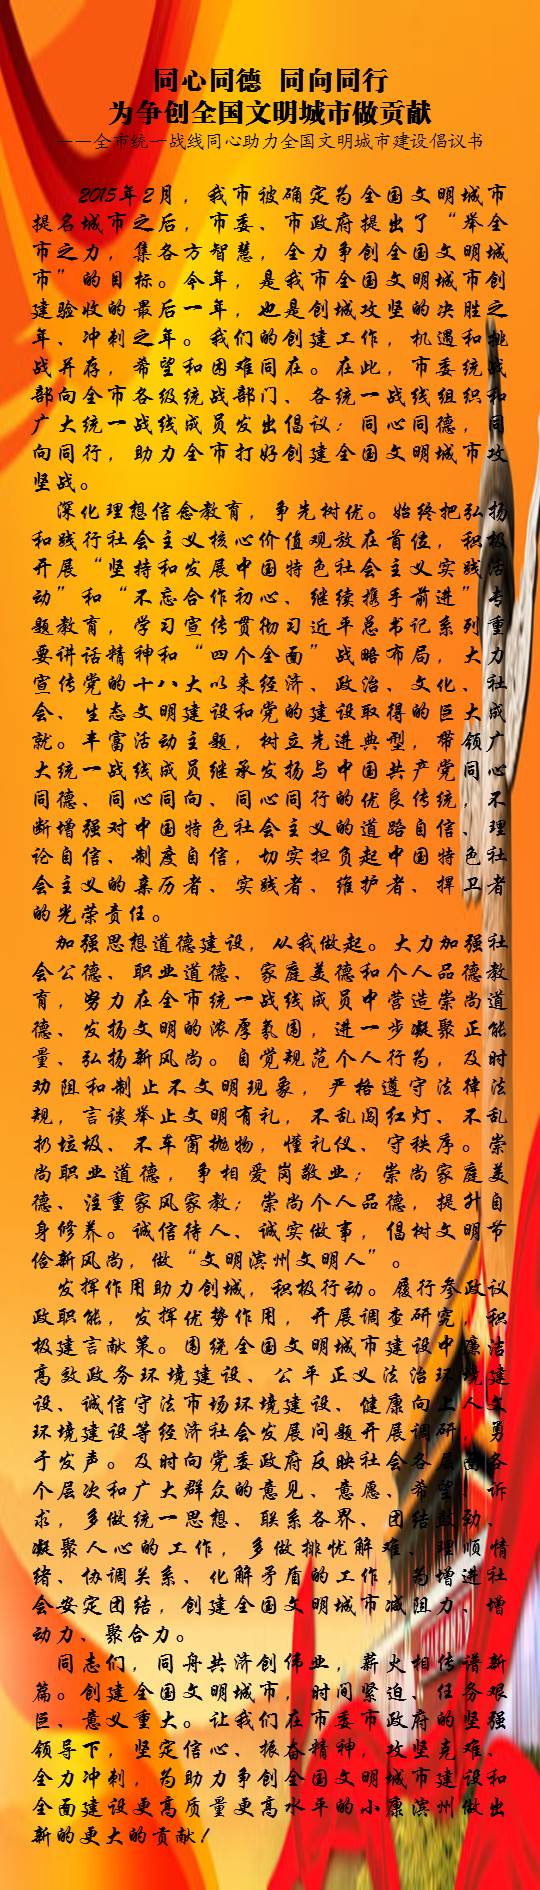 同心同德 同向同行
为争创全国文明城市做贡献
——全市统一战线同心助力全国文明城市建设倡议书
2015年2月，我市被确定为全国文明城市
提名城市之后，市委、市政府提出了“举全
市之力，集各方智慧，全力争创全国文明城
市”的目标。今年，是我市全国文明城市创
建验收的最后一年，也是创城攻坚的决胜之
年、冲刺之年。我们的创建工作，机遇和挑
战并存，希望和困难同在。在此，市委统战
部向全市各级统战部门、各统一战线组织和
广大统一战线成员发出倡议：同心同德，同
向同行，助力全市打好创建全国文明城市攻
坚战。
深化理想信念教育，争先树优。始终把弘扬
和践行社会主义核心价值观放在首位，积极
开展“坚持和发展中国特色社会主义实践活
动”和“不忘合作初心、继续携手前进”专
题教育，学习宣传贯彻习近平总书记系列重
要讲话精神和“四个全面”战略布局，大力
宣传党的十八大以来经济、政治、文化、社
会、生态文明建设和党的建设取得的巨大成
就。丰富活动主题，树立先进典型，带领广
大统一战线成员继承发扬与中国共产党同心
同德、同心同向、同心同行的优良传统，不
断增强对中国特色社会主义的道路自信、理
论自信、制度自信，切实担负起中国特色社
会主义的亲历者、实践者、维护者、捍卫者
的光荣责任。
加强思想道德建设，从我做起。大力加强社
会公德、职业道德、家庭美德和个人品德教
育，努力在全市统一战线成员中营造崇尚道
德、发扬文明的浓厚氛围，进一步凝聚正能
量、弘扬新风尚。自觉规范个人行为，及时
劝阻和制止不文明现象，严格遵守法律法
规，言谈举止文明有礼，不乱闯红灯、不乱
扔垃圾、不车窗抛物，懂礼仪、守秩序。崇
尚职业道德，争相爱岗敬业；崇尚家庭美
德、注重家风家教；崇尚个人品德，提升自
身修养。诚信待人、诚实做事，倡树文明节
俭新风尚，做“文明滨州文明人”。
发挥作用助力创城，积极行动。履行参政议
政职能，发挥优势作用，开展调查研究，积
极建言献策。围绕全国文明城市建设中廉洁
高效政务环境建设、公平正义法治环境建
设、诚信守法市场环境建设、健康向上人文
环境建设等经济社会发展问题开展调研，勇
于发声。及时向党委政府反映社会各层面各
个层次和广大群众的意见、意愿、希望、诉
求，多做统一思想、联系各界、团结鼓劲、
凝聚人心的工作，多做排忧解难、理顺情
绪、协调关系、化解矛盾的工作，为增进社
会安定团结，创建全国文明城市减阻力、增
动力、聚合力。
同志们，同舟共济创伟业，薪火相传谱新
篇。创建全国文明城市，时间紧迫、任务艰
巨、意义重大。让我们在市委市政府的坚强
领导下，坚定信心、振奋精神，攻坚克难、
全力冲刺，为助力争创全国文明城市建设和
全面建设更高质量更高水平的小康滨州做出
新的更大的贡献！